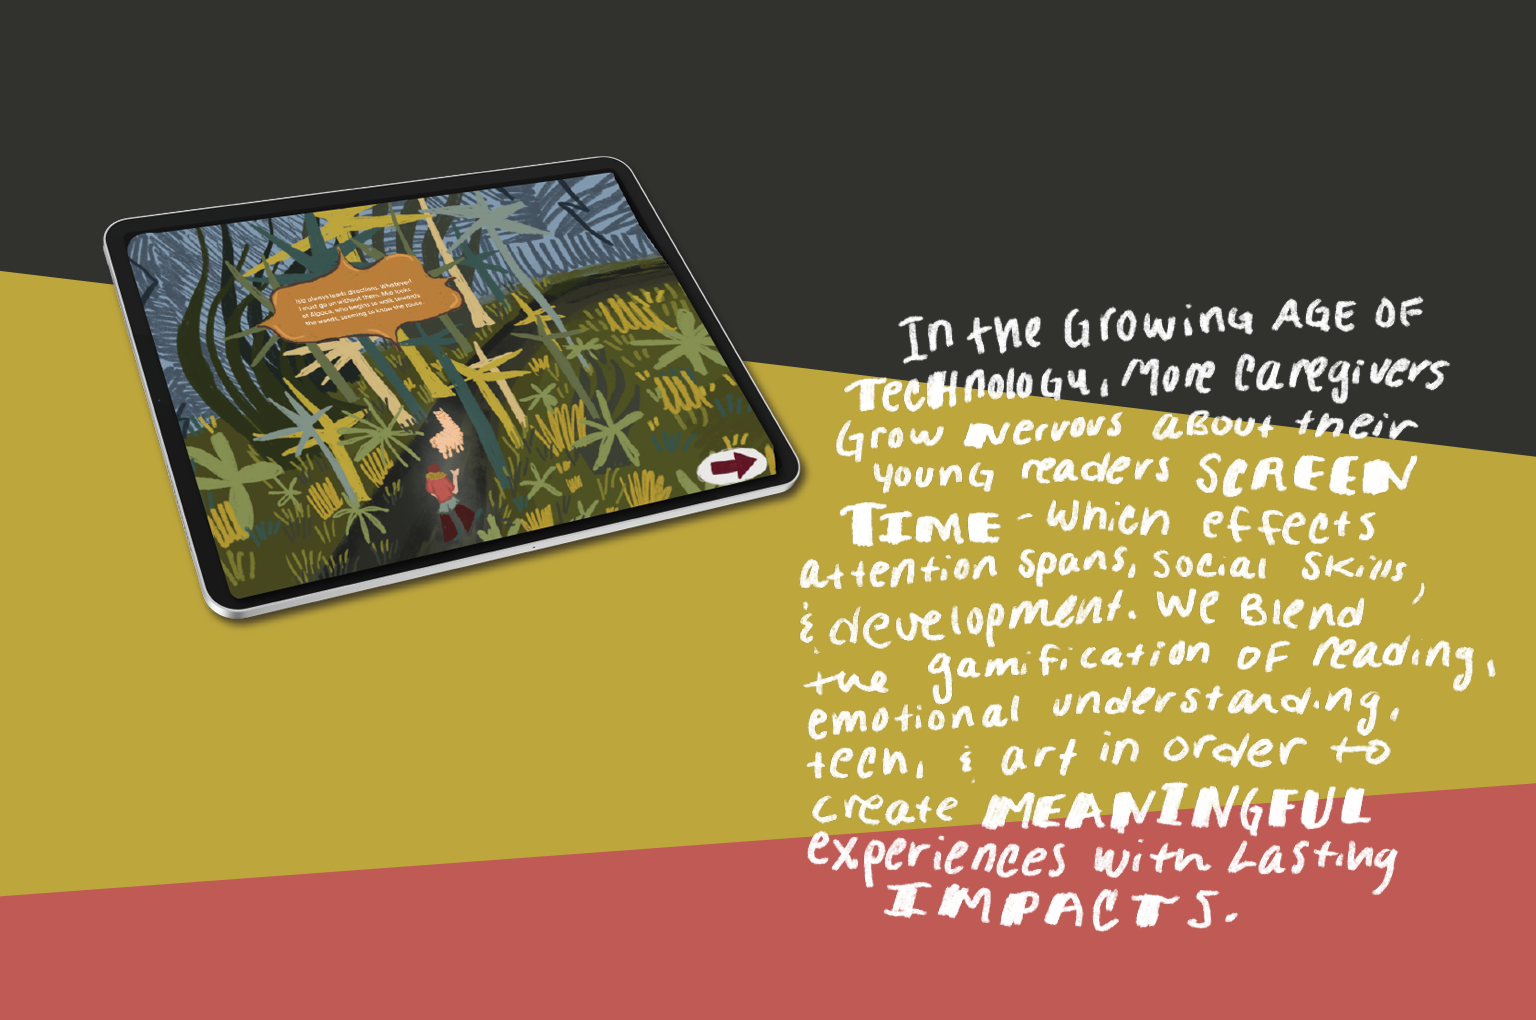 always leads directions. Whatever!
I must go on without them. Mio looks
at Alpaca, who begins to walk towards
the woods, seeming to know the route.
In the Growing AGE OF
TecHnoloGy, More Caregivers
Grow nervous aBout their
younG readers SCREEN
TIME - Which effects
attention spans, social skills,
& development. We Blend
the gamification of reading,
emotional understanding,
tech, & art in order to
create MEANINGFUL
experiences with Lasting
IMPACTS.